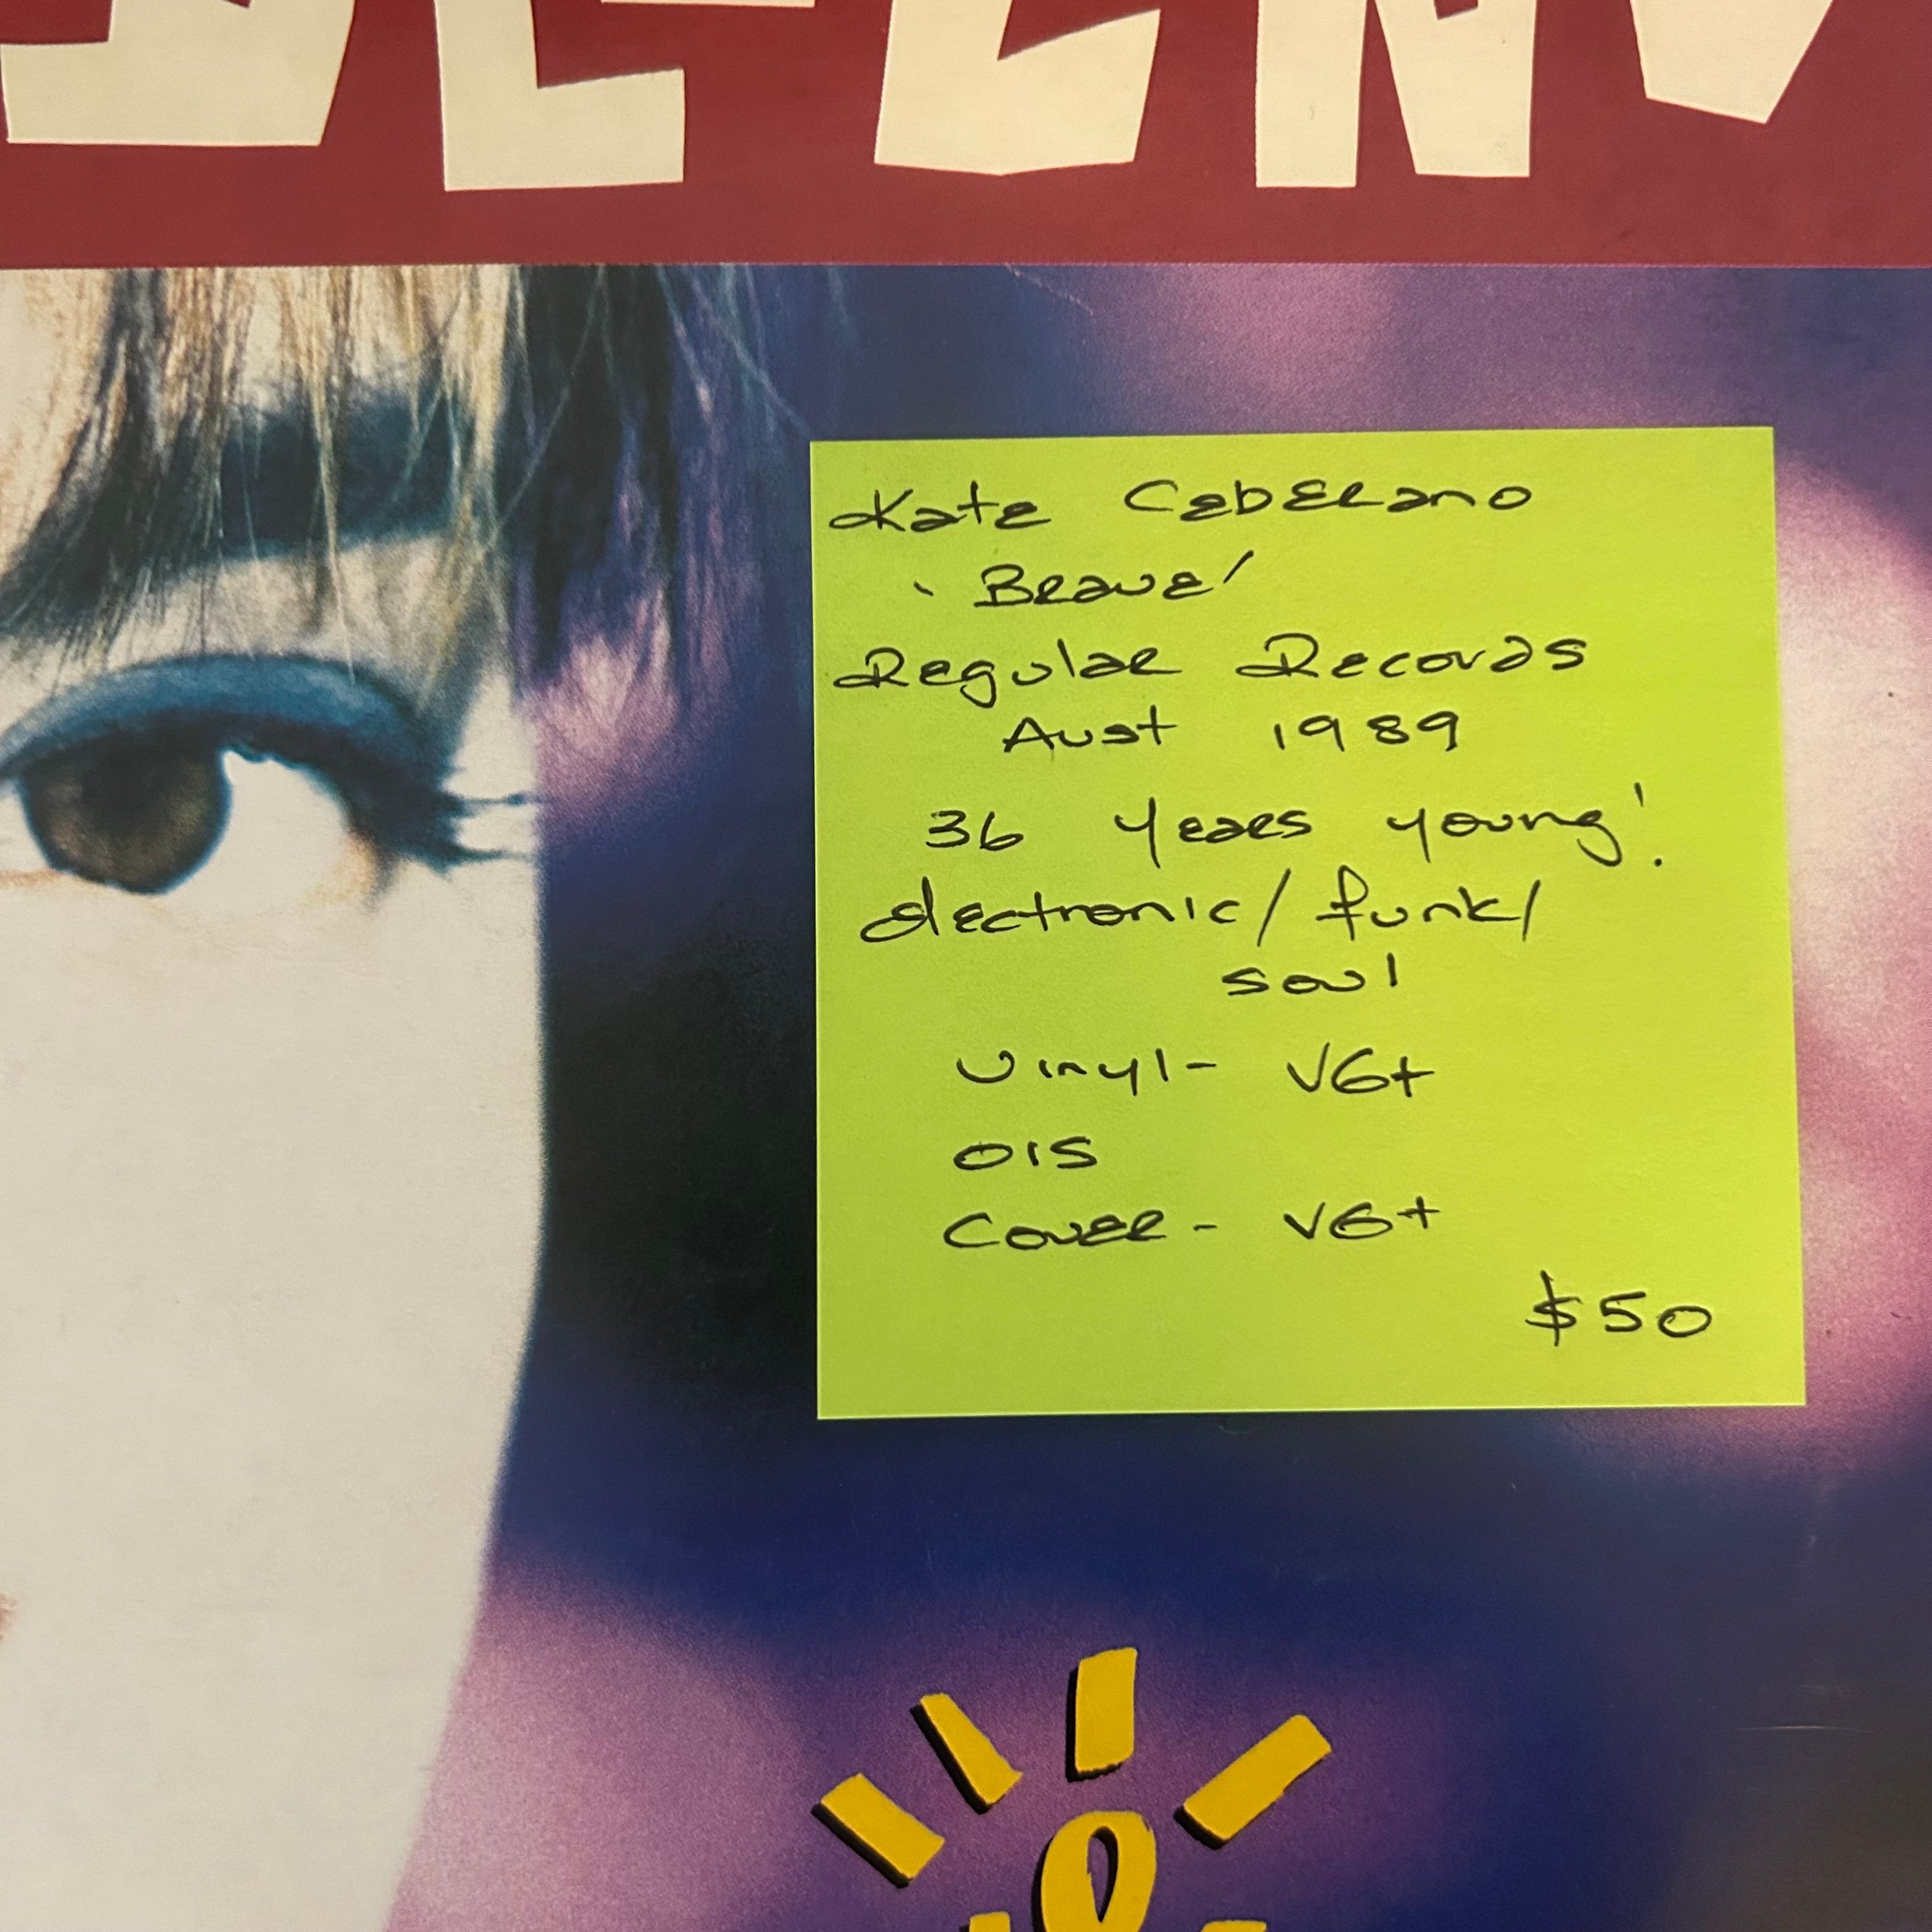 Kate Ceberano
'Brave'
Regular Records
Aust 1989
36 years young!
electronic/funk/
soul
Vinyl- VG+
OIS
Cover- VG+
$50